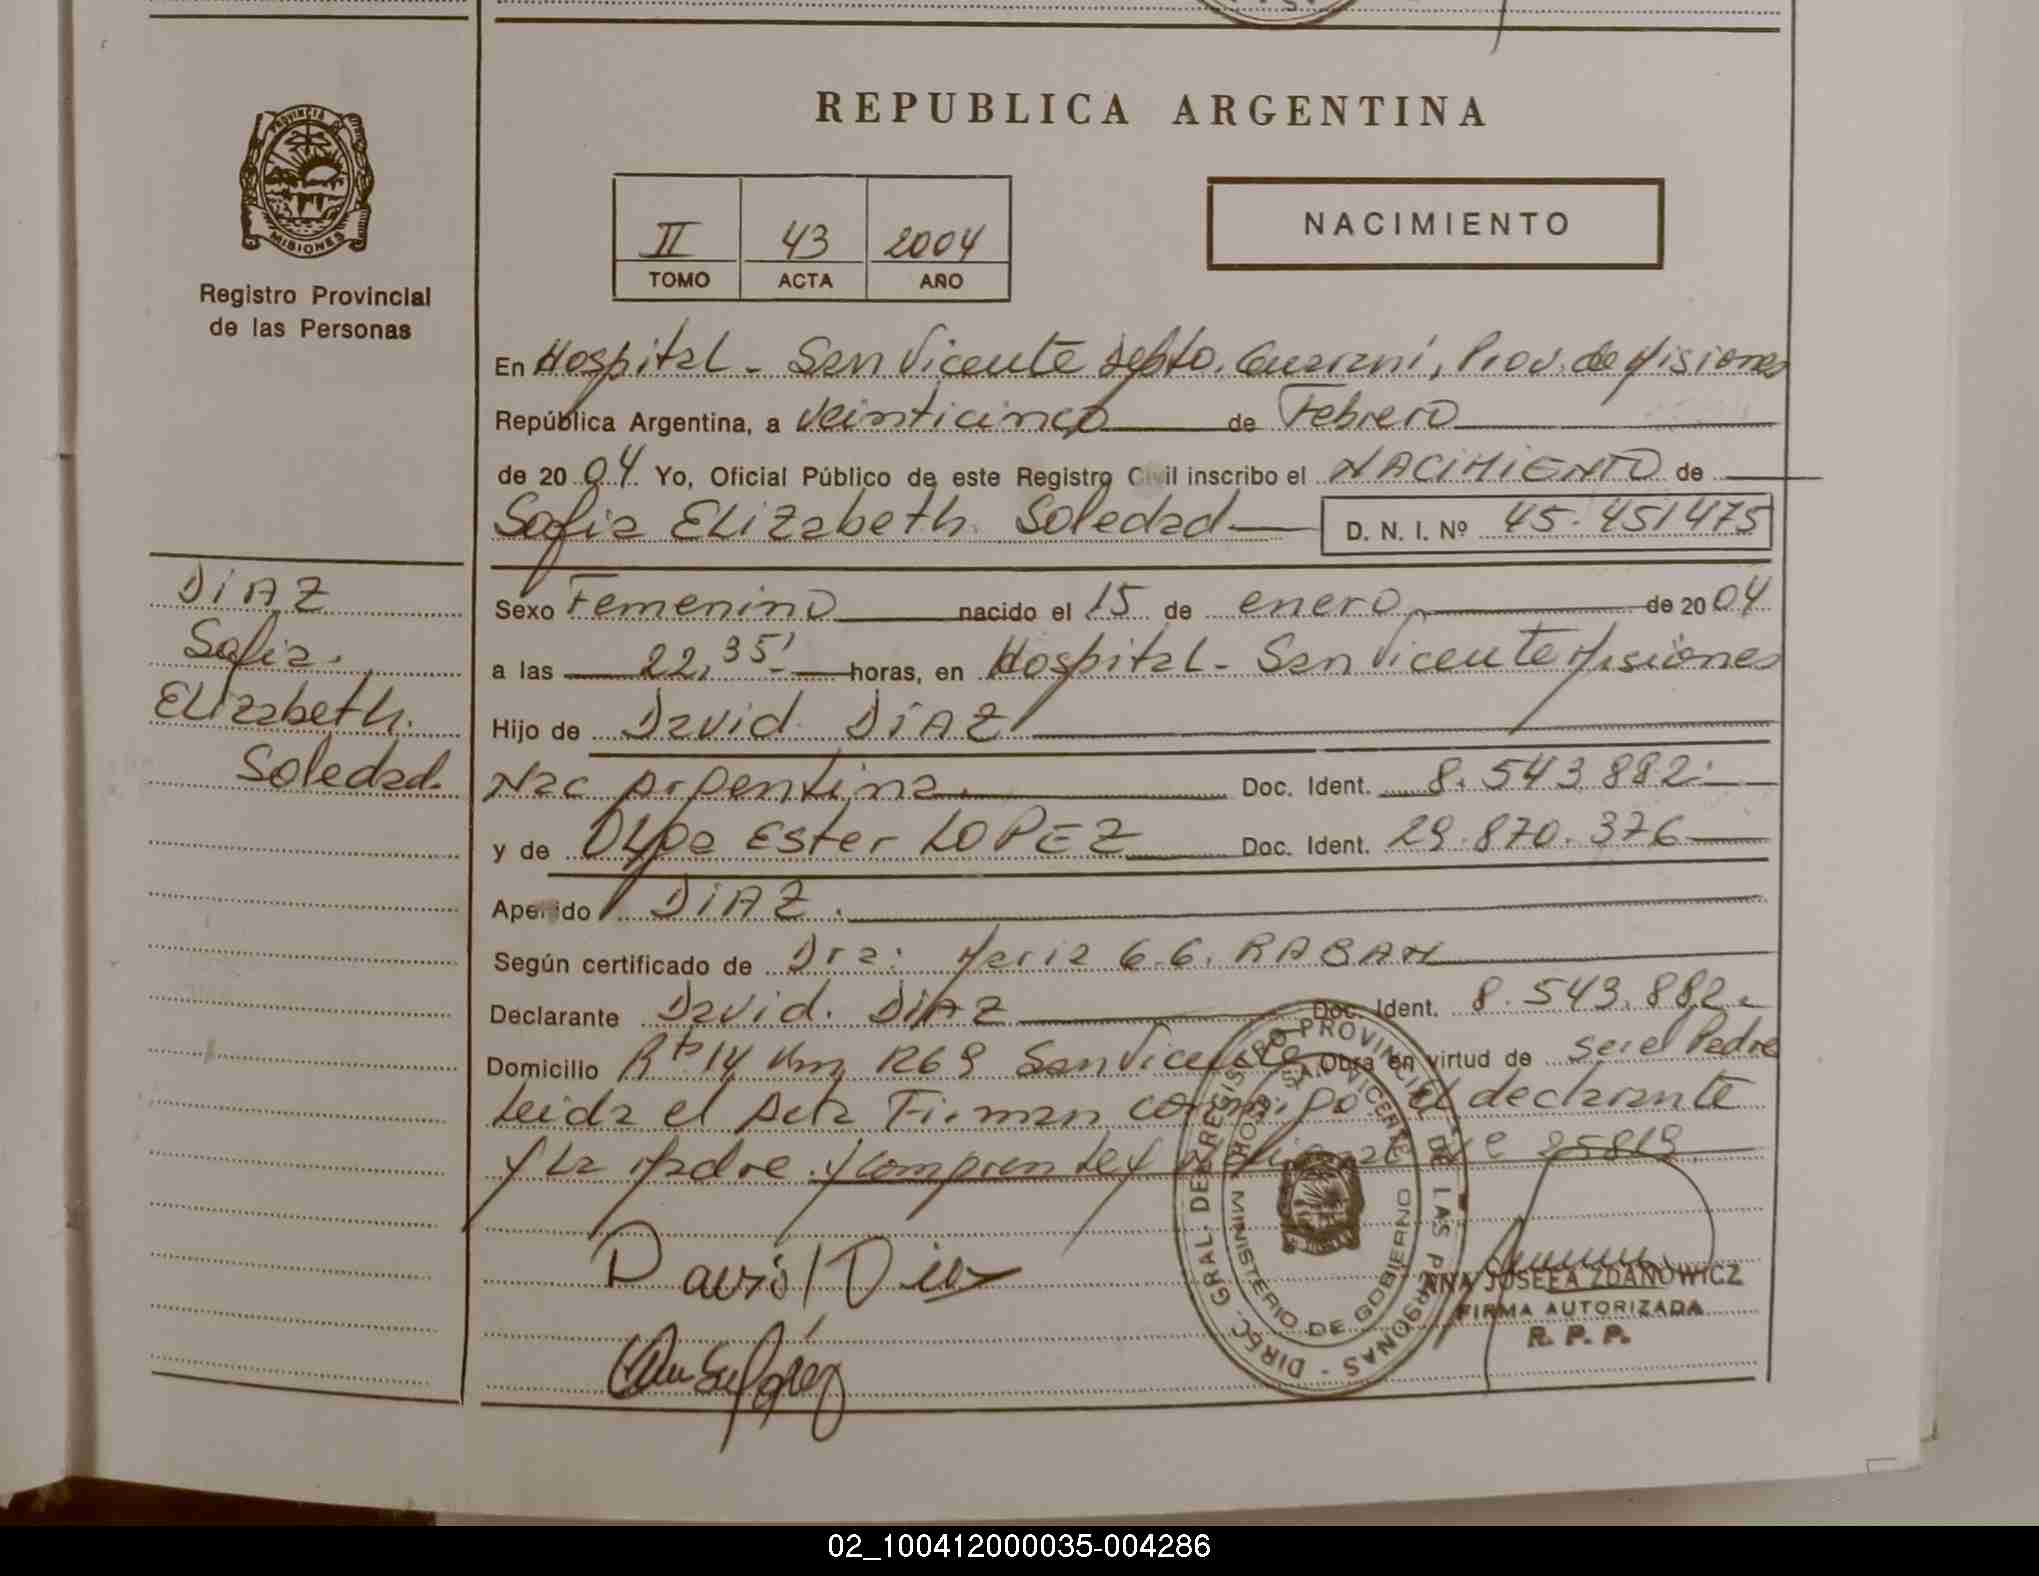 REPUBLICA ARGENTINA
PROVINCIA DE MISIONES
Registro Provincial
de las Personas
II 43 2004
TOMO ACTA AÑO
NACIMIENTO
En Hospital - San Vicente Depto. Guaraní, Prov. de Misiones
República Argentina, a veinticinco de Febrero
de 2004 Yo, Oficial Público de este Registro Civil inscribo el NACIMIENTO de
Sofia Elizabeth Soledad D. N. I. Nº 45.451475
DiAZ
Sofia
Elizabeth
Soledad
Sexo Femenino nacido el 15 de enero de 2004
a las 22,35' horas, en Hospital - San Vicente Misiones
Hijo de David DiAZ
Nac Argentina Doc. Ident. 8.543.882
y de Olga Ester LOPEZ Doc. Ident. 29.870.376
Apellido DiAZ
Según certificado de Dra: Maria G.G. RABAN
Declarante David DiAZ Doc. Ident. 8.543.882
Domicilio Rta 14 Km 1269 San Vicente Obra en virtud de ser el Padre
Leida el Acta Firman conmigo el declarante
y La Madre y comprende 25819
David Diaz
DIREC. GRAL. DEL REGISTRO PROVINCIAL DE LAS PERSONAS
HOSP. SAN VICENTE
MINISTERIO DE GOBIERNO
ANA JOSEFA ZDANOWICZ
FIRMA AUTORIZADA
R. P. P.
02_100412000035-004286